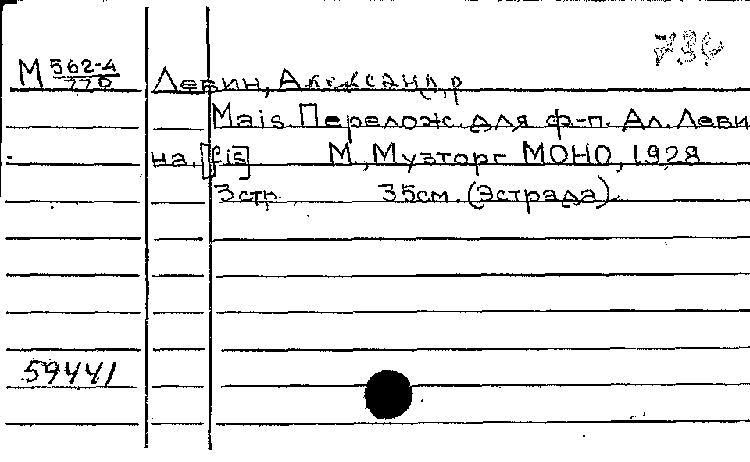 736
М 562-4
770
Левин, Александр
Mais. Перелож. для ф-п. Ал. Леви
на. [fis] М., Музторг МОНО, 1928
3 стр. 35 см. (Эстрада).
59441